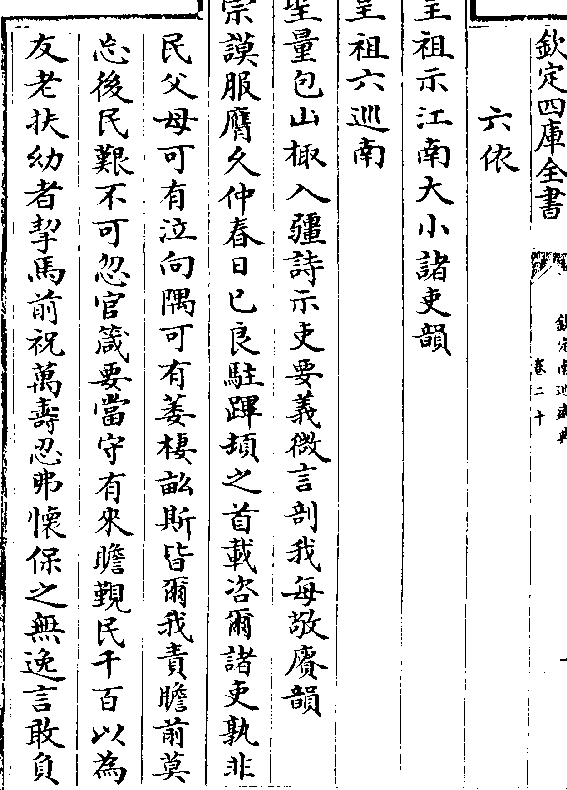 欽定四庫全書
欽定南巡盛典
卷二十
六依
聖祖示江南大小諸吏韻
聖祖六巡南
聖量包山棷入疆詩示吏要義微言剖我每敬賡韻
宗謨服膺久仲春日已良駐蹕頖之首載咨爾諸吏孰非
民父母可有泣向隅可有萎棲畝斯皆爾我責瞻前莫
忘後民艱不可忽官箴要當守有來瞻覲民千百以為
友老扶幼者挈馬前祝萬壽忍弗懷保之無逸言敢負